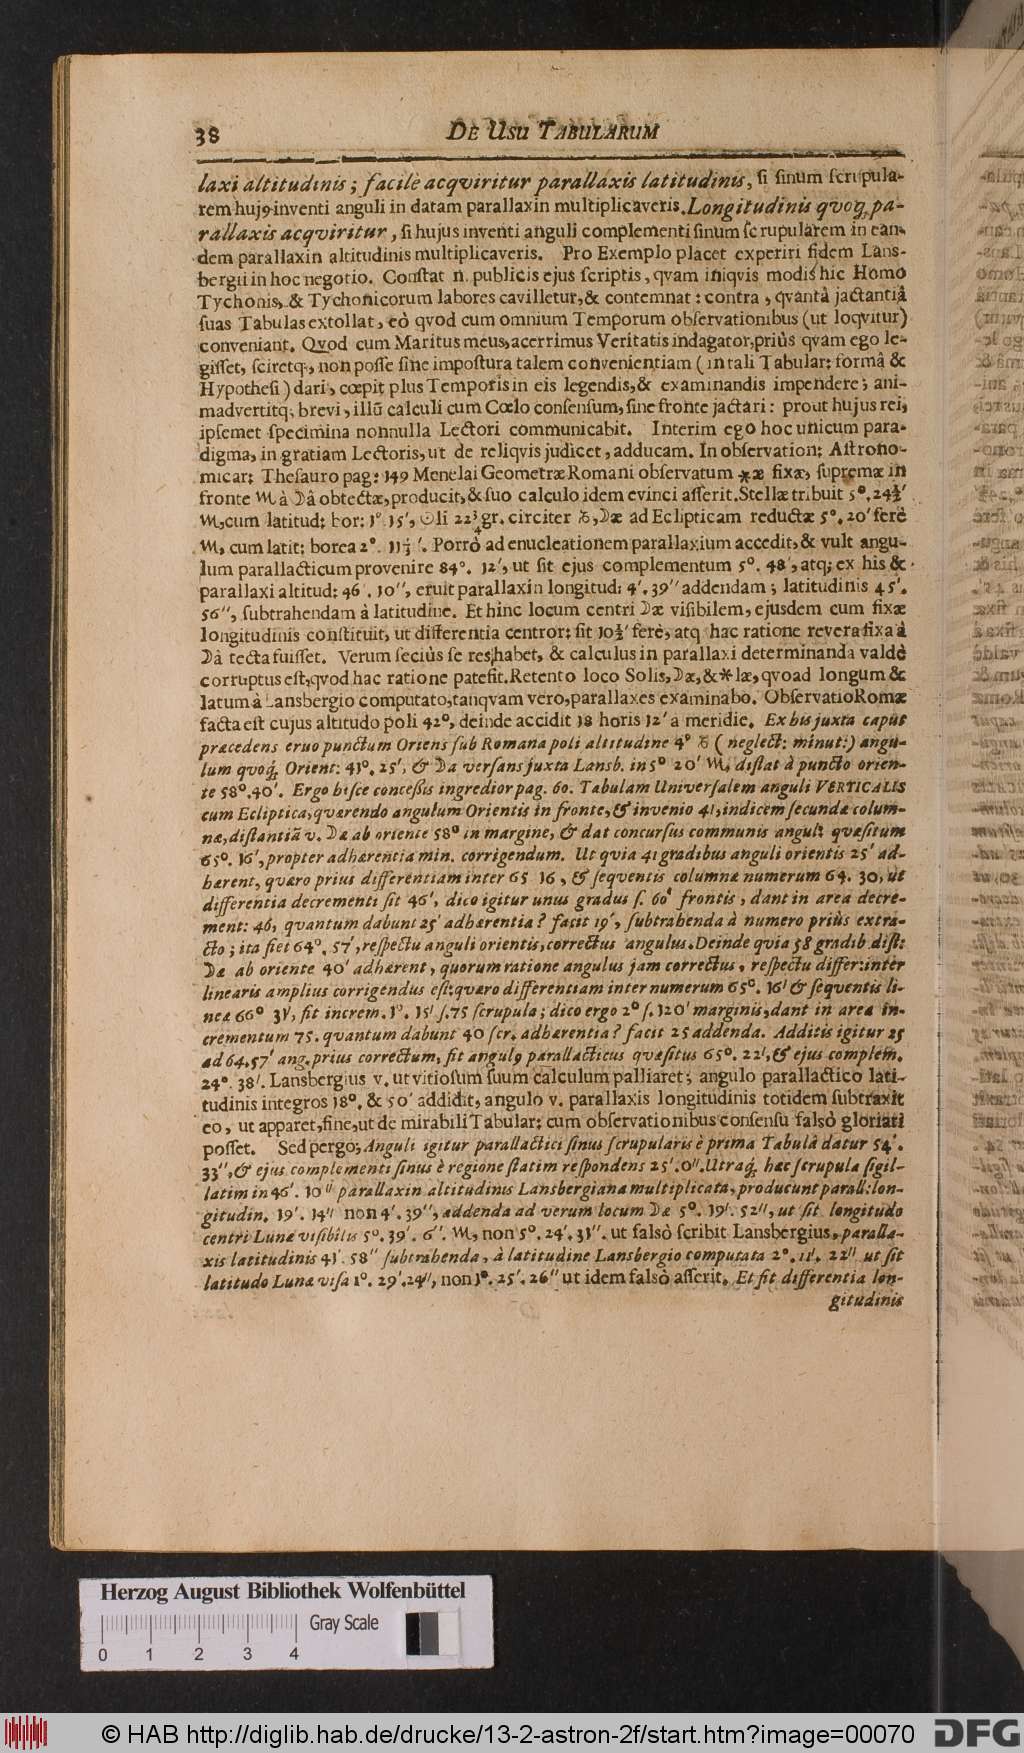 38 DE USU TABULARUM
laxi altitudinis; facilè acqviritur parallaxis latitudinis, si sinum scrupula-
rem hujꝰ inventi anguli in datam parallaxin multiplicaveris. Longitudinis qvoq; pa-
rallaxis acqviritur, si hujus inventi anguli complementi sinum scrupularem in ean-
dem parallaxin altitudinis multiplicaveris. Pro Exemplo placet experiri fidem Lans-
bergii in hoc negotio. Constat n. publicis ejus scriptis, qvam iniqvis modis hic Homo
Tychonis, & Tychonicorum labores cavilletur, & contemnat: contra, qvantâ jactantiâ
suas Tabulas extollat, eò qvod cum omnium Temporum observationibus (ut loqvitur)
conveniant. Qvod cum Maritus meus, acerrimus Veritatis indagator, priùs qvam ego le-
gisset, sciretq;, non posse sine impostura talem convenientiam (in tali Tabular: formâ &
Hypothesi) dari, cœpit plus Temporis in eis legendis, & examinandis impendere; ani-
madvertitq; brevi, illũ calculi cum Cœlo consensum, sine fronte jactari: prout hujus rei,
ipsemet specimina nonnulla Lectori communicabit. Interim ego hoc unicum para-
digma, in gratiam Lectoris, ut de reliqvis judicet, adducam. In observation: Astrono-
micar: Thesauro pag: 149 Menelai Geometræ Romani observatum *æ fixæ, supremæ in
fronte ♏ à ☽â obtectæ, producit, & suo calculo idem evinci asserit. Stellæ tribuit 5°. 24½′
♏, cum latitud: bor: 1° 15′, ☉li 22¾ gr. circiter ♑, ☽æ ad Eclipticam reductæ 5°. 20′ ferè
♏, cum latit: borea 2°. 11⅓′. Porrò ad enucleationem parallaxium accedit, & vult angu-
lum parallacticum provenire 84°. 12′, ut sit ejus complementum 5°. 48′, atq; ex his &
parallaxi altitud: 46′. 10″, eruit parallaxin longitud: 4′. 39″ addendam; latitudinis 45′.
56″, subtrahendam à latitudine. Et hinc locum centri ☽æ visibilem, ejusdem cum fixæ
longitudinis constituit, ut differentia centror: sit 10¾′ ferè, atq hac ratione revera fixa à
☽â tecta fuisset. Verum seciùs se res habet, & calculus in parallaxi determinanda valdè
corruptus est, qvod hac ratione patefit. Retento loco Solis, ☽æ, & *læ, qvoad longum &
latum à Lansbergio computato, tanqvam vero, parallaxes examinabo. Observatio Romæ
facta est cujus altitudo poli 42°, deinde accidit 18 horis 12′ a meridie. Ex his juxta caput
præcedens eruo punctum Oriens sub Romana poli altitudine 4° ♑ (neglect: minut:) angu-
lum quoq; Orient: 41°. 25′, & ☽a versans juxta Lansb. in 5° 20′ ♏, distat à puncto orien-
te 58°. 40′. Ergo hisce concessis ingredior pag. 60. Tabulam Universalem anguli VERTICALIS
cum Ecliptica, quærendo angulum Orientis in fronte, & invenio 41, indicem secundæ colum-
næ, distantiã v. ☽æ ab oriente 58° in margine, & dat concursus communis anguli quæsitum
65°. 16′, propter adhærentia min. corrigendum. Ut quia 41 gradibus anguli orientis 25′ ad-
hærent, quæro prius differentiam inter 65 16, & sequentis columnæ numerum 64. 30, ut
differentia decrementi sit 46′, dico igitur unus gradus s. 60′ frontis, dant in area decre-
ment: 46, quantum dabunt 25′ adhærentia? facit 19′, subtrahenda à numero priùs extra-
cto; ita fiet 64°. 57′, respectu anguli orientis, correctus angulus. Deinde quia 58 gradib dist:
☽æ ab oriente 40′ adhærent, quorum ratione angulus jam correctus, respectu differ: inter
linearis amplius corrigendus est: quæro differentiam inter numerum 65°. 16′ & sequentis li-
neæ 66° 31′, sit increm. 1°. 15′ s. 75 scrupula; dico ergo 2° s. 120′ marginis, dant in area in-
crementum 75. quantum dabunt 40 scr. adhærentia? facit 25 addenda. Additis igitur 25
ad 64. 57′ ang. prius correctum, fit angulꝰ parallacticus quæsitus 65°. 22′, & ejus complem.
24°. 38′. Lansbergius v. ut vitiosum suum calculum palliaret; angulo parallactico lati-
tudinis integros 18°. & 50′ addidit, angulo v. parallaxis longitudinis totidem subtraxit
eo, ut apparet, fine, ut de mirabili Tabular: cum observationibus consensu falsò gloriari
posset. Sed pergo; Anguli igitur parallactici sinus scrupularis è prima Tabulâ datur 54′.
33″, & ejus complementi sinus è regione statim respondens 25′. 0″. Utraq; hæc scrupula sigil-
latim in 46′. 10″ parallaxin altitudinis Lansbergiana multiplicata, producunt parall: lon-
gitudin. 19′. 14″ non 4′. 39″, addenda ad verum locum ☽æ 5°. 19′. 52″, ut sit longitudo
centri Lunæ visibilis 5°. 39′. 6″. ♏, non 5°. 24′. 31″. ut falsò scribit Lansbergius, paralla-
xis latitudinis 41′. 58″ subtrahenda, à latitudine Lansbergio computata 2°. 11′. 22″ ut sit
latitudo Lunæ visa 1°. 29′. 24″, non 1°. 25′. 26″ ut idem falsò asserit. Et sit differentia lon-
gitudinis
Herzog August Bibliothek Wolfenbüttel
Gray Scale
0 1 2 3 4
© HAB http://diglib.hab.de/drucke/13-2-astron-2f/start.htm?image=00070 DFG